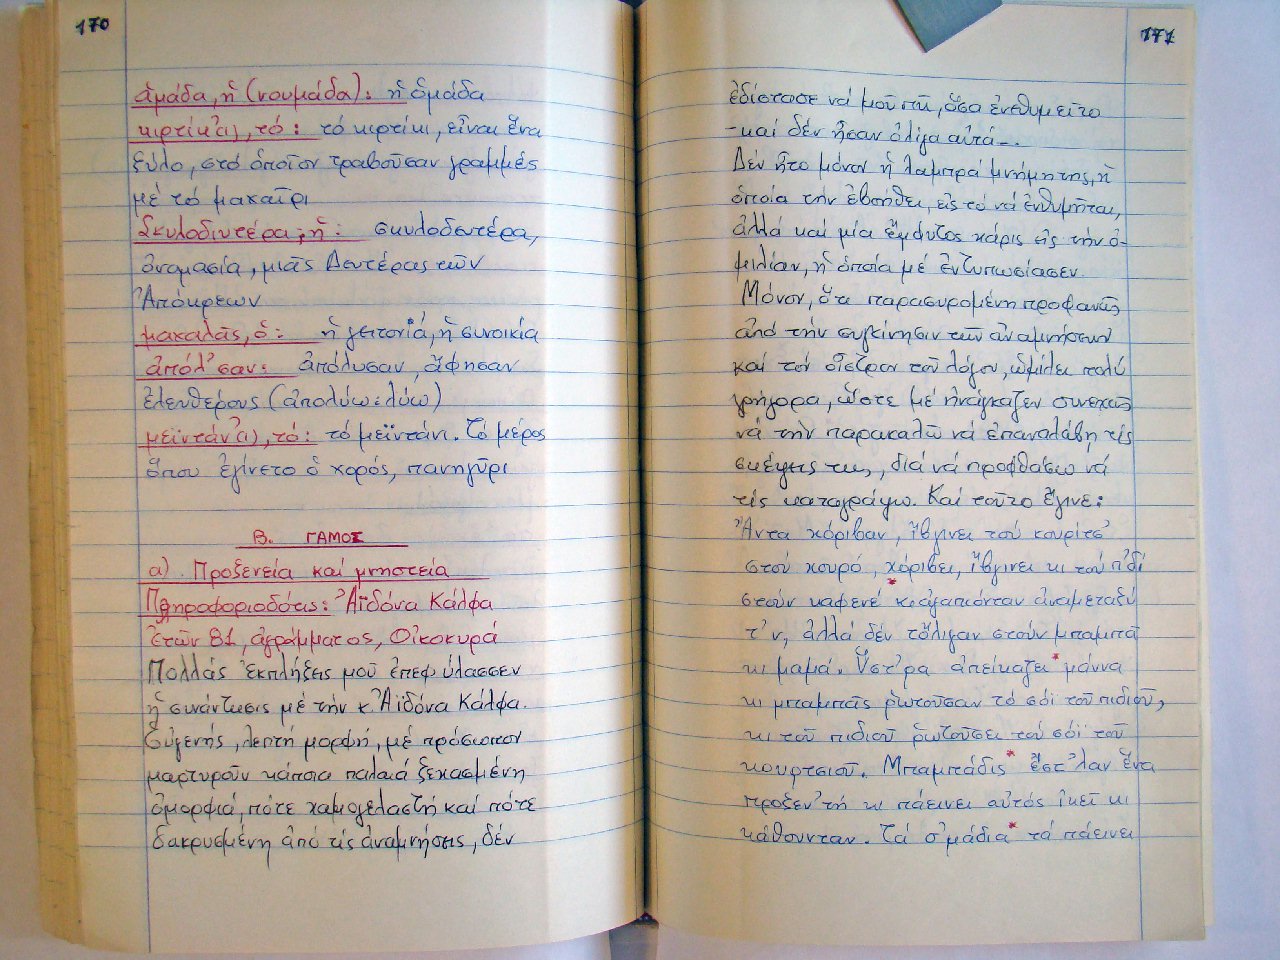 170
ἁμάδα, ἡ (νουμάδα): ἡ ὁμάδα
κιρτίκ'ι), τό: τό κιρτίκι, εἶναι ἕνα
ξύλο, στό ὁποῖον τραβοῦσαν γραμμές
μέ τό μαχαῖρι
Σκυλοδιυτέρα, ἡ: σκυλοδευτέρα,
ὀνομασία, μιᾶς Δευτέρας τῶν
Ἀπόκρεων
μαχαλᾶς, ὁ: ἡ γειτονιά, ἡ συνοικία
ἀπόλ'σαν: ἀπόλυσαν, ἄφησαν
ἐλευθέρους (ἀπολύω: λύω)
μεϊντάν'ι), τό: τό μεϊντάνι. Τό μέρος
ὅπου ἐγίνετο ὁ χορός, πανηγῦρι
Β. ΓΑΜΟΣ
α). Προξενεία καί μνηστεία
Πληροφοριοδότις: Ἀϊδόνα Κάλφα
ἐτῶν 81, ἀγράμματος, Οἰκοκυρά
Πολλάς ἐκπλήξεις μοῦ ἐπεφύλασσεν
ἡ συνάντησις μέ τήν κ. Ἀϊδόνα Κάλφα.
Εὐγενής, λεπτή μορφή, μέ πρόσωπον
μαρτυροῦν κάποια παλαιά ξεχασμένη
ὀμορφιά, πότε χαμογελαστή καί πότε
δακρυσμένη ἀπό τίς ἀναμνήσεις, δέν
171
ἐδίστασε νά μοῦ πῆ, ὅσα ἐνεθυμεῖτο
-καί δέν ἦσαν ὀλίγα αὐτά-.
Δέν ἦτο μόνον ἡ λαμπρά μνήμη της, ἡ
ὁποία τήν ἐβοήθει, εἰς τό νά ἐνθυμῆται,
ἀλλά καί μία ἔμφυτος χάρις εἰς τήν ὁ-
μιλίαν, ἡ ὁποία μέ ἐντυπωσίασεν.
Μόνον, ὅτι παρασυρομένη προφανῶς
ἀπό τήν συγκίνησιν τῶν ἀναμνήσεων
καί τόν οἶστρον τοῦ λόγου, ὡμίλει πολύ
γρήγορα, ὥστε μέ ἠνάγκαζεν συνεχῶς
νά τήν παρακαλῶ νά ἐπαναλάβη τίς
σκέψεις της, διά νά προφθάσω νά
τίς καταγράψω. Καί τοῦτο ἔγινε:
Ἄντα χόριβαν, ἤβγινει τού κουρίτσ'
στού χουρό, χόριβει, ἤβγινει κι τού π'δί
στούν καφενέ* κι ἀγαπιόνταν ἀναμεταξύ
τ'ν, ἀλλά δέν τὄλιγαν στούν μπαμπᾶ
κι μαμά. Ὕστ'ρα ἀπείκαζει* μάννα
κι μπαμπᾶς ρωτοῦσαν τό σόϊ τοῦ πιδιοῦ,
κι τοῦ πιδιοῦ ρωτοῦσει τού σόϊ τοῦ
κουρτσιοῦ. Μπαμπάδις* ἔστ'λαν ἕνα
προξεν'τή κι πάεινει αὐτός ἰκεῖ κι
κάθουνταν. Τά σ'μάδια* τά πάεινει